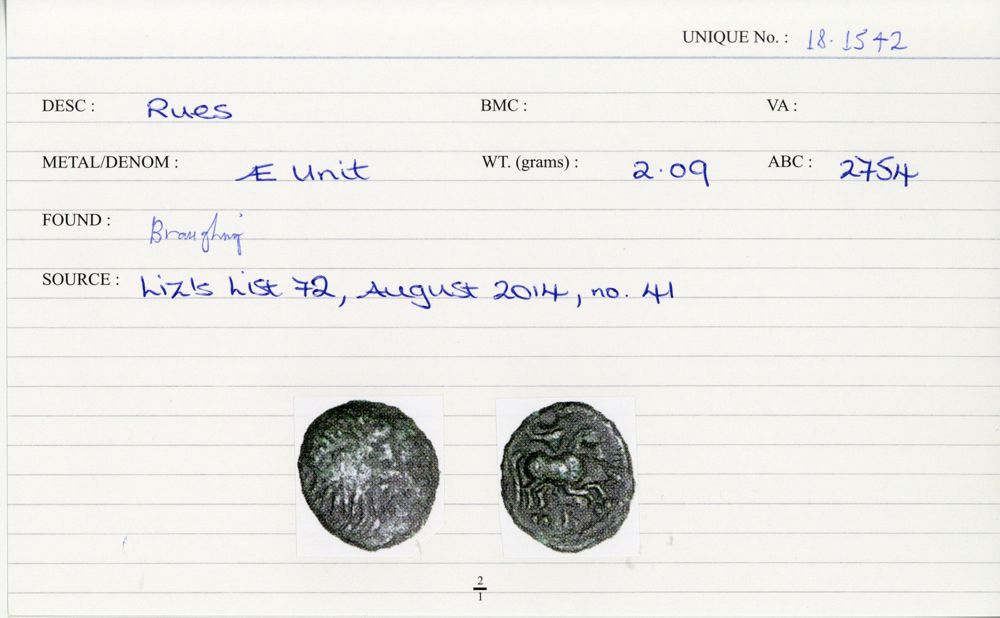 UNIQUE No. : 18.1542
DESC : Rues BMC : VA :
METAL/DENOM : Æ Unit WT. (grams) : 2.09 ABC : 2754
FOUND : Braughing
SOURCE : Liz's List 72, August 2014, no. 41
2
1